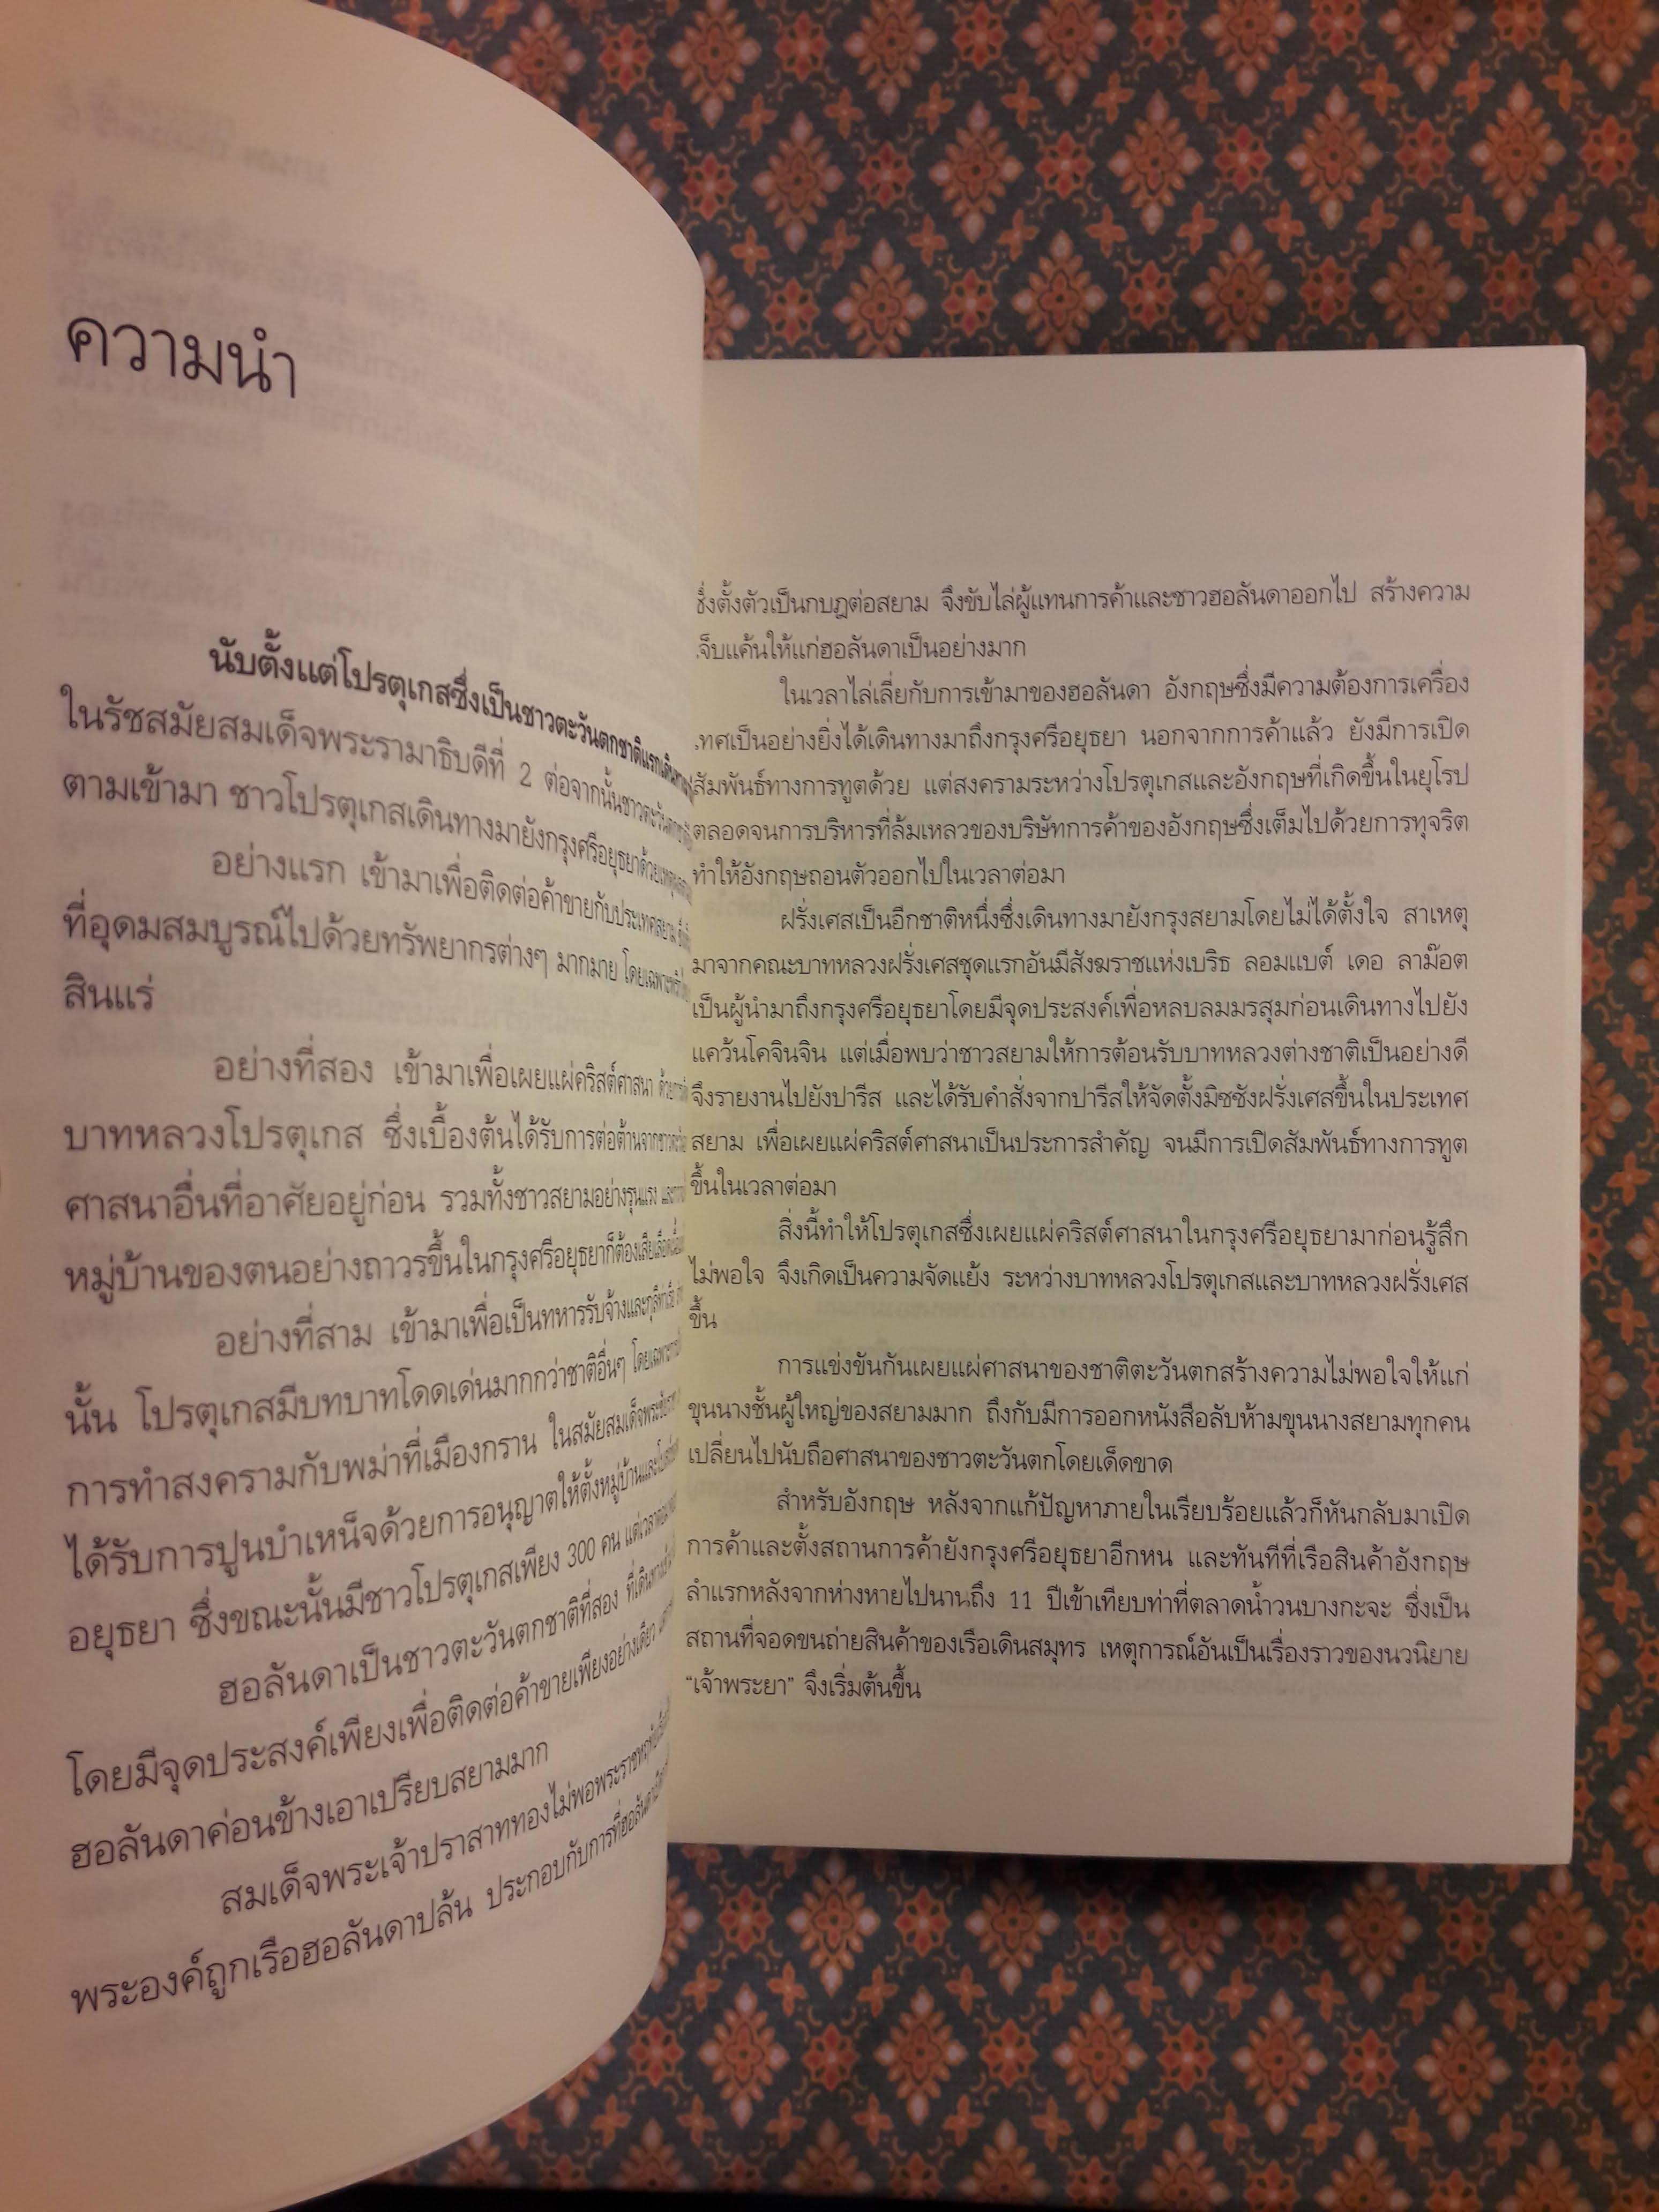 ความนำ
นับตั้งแต่โปรตุเกสซึ่งเป็นชาวตะวันตกชาติแรกเดินทาง
ในรัชสมัยสมเด็จพระรามาธิบดีที่ 2 ต่อจากนั้นชาวตะวันตก
ตามเข้ามา ชาวโปรตุเกสเดินทางมายังกรุงศรีอยุธยาด้วย
อย่างแรก เข้ามาเพื่อติดต่อค้าขายกับประเทศสยาม
ที่อุดมสมบูรณ์ไปด้วยทรัพยากรต่างๆ มากมาย โดยเฉพาะ
สินแร่
อย่างที่สอง เข้ามาเพื่อเผยแผ่คริสต์ศาสนา
บาทหลวงโปรตุเกส ซึ่งเบื้องต้นได้รับการต่อต้านจาก
ศาสนาอื่นที่อาศัยอยู่ก่อน รวมทั้งชาวสยามอย่างรุนแรง
หมู่บ้านของตนอย่างถาวรขึ้นในกรุงศรีอยุธยาก็ต้องเสียเลือด
อย่างที่สาม เข้ามาเพื่อเป็นทหารรับจ้างและกุลีท่าเรือ
นั้น โปรตุเกสมีบทบาทโดดเด่นมากกว่าชาติอื่นๆ โดยเฉพาะ
การทำสงครามกับพม่าที่เมืองกราน ในสมัยสมเด็จพระชัยราชา
ได้รับการปูนบำเหน็จด้วยการอนุญาตให้ตั้งหมู่บ้านและ
อยุธยา ซึ่งขณะนั้นมีชาวโปรตุเกสเพียง 300 คน
ฮอลันดาเป็นชาวตะวันตกชาติที่สอง ที่เดินทาง
โดยมีจุดประสงค์เพียงเพื่อติดต่อค้าขายเพียงอย่างเดียว
ฮอลันดาค่อนข้างเอาเปรียบสยามมาก
สมเด็จพระเจ้าปราสาททองไม่พอพระราชหฤทัย
พระองค์ถูกเรือฮอลันดาปล้น ประกอบกับการที่ฮอลันดา
ซึ่งตั้งตัวเป็นกบฎต่อสยาม จึงขับไล่ผู้แทนการค้าและชาวฮอลันดาออกไป สร้างความ
เจ็บแค้นให้แก่ฮอลันดาเป็นอย่างมาก
ในเวลาไล่เลี่ยกับการเข้ามาของฮอลันดา อังกฤษซึ่งมีความต้องการเครื่อง
เทศเป็นอย่างยิ่งได้เดินทางมาถึงกรุงศรีอยุธยา นอกจากการค้าแล้ว ยังมีการเปิด
สัมพันธ์ทางการทูตด้วย แต่สงครามระหว่างโปรตุเกสและอังกฤษที่เกิดขึ้นในยุโรป
ตลอดจนการบริหารที่ล้มเหลวของบริษัทการค้าของอังกฤษซึ่งเต็มไปด้วยการทุจริต
ทำให้อังกฤษถอนตัวออกไปในเวลาต่อมา
ฝรั่งเศสเป็นอีกชาติหนึ่งซึ่งเดินทางมายังกรุงสยามโดยไม่ได้ตั้งใจ สาเหตุ
มาจากคณะบาทหลวงฝรั่งเศสชุดแรกอันมีสังฆราชแห่งเบริธ ลอมแบต์ เดอ ลาม๊อต
เป็นผู้นำมาถึงกรุงศรีอยุธยาโดยมีจุดประสงค์เพื่อหลบลมมรสุมก่อนเดินทางไปยัง
แคว้นโคจินจิน แต่เมื่อพบว่าชาวสยามให้การต้อนรับบาทหลวงต่างชาติเป็นอย่างดี
จึงรายงานไปยังปารีส และได้รับคำสั่งจากปารีสให้จัดตั้งมิชชังฝรั่งเศสขึ้นในประเทศ
สยาม เพื่อเผยแผ่คริสต์ศาสนาเป็นประการสำคัญ จนมีการเปิดสัมพันธ์ทางการทูต
ขึ้นในเวลาต่อมา
สิ่งนี้ทำให้โปรตุเกสซึ่งเผยแผ่คริสต์ศาสนาในกรุงศรีอยุธยามาก่อนรู้สึก
ไม่พอใจ จึงเกิดเป็นความขัดแย้ง ระหว่างบาทหลวงโปรตุเกสและบาทหลวงฝรั่งเศส
ขึ้น
การแข่งขันกันเผยแผ่ศาสนาของชาติตะวันตกสร้างความไม่พอใจให้แก่
ขุนนางชั้นผู้ใหญ่ของสยามมาก ถึงกับมีการออกหนังสือลับห้ามขุนนางสยามทุกคน
เปลี่ยนไปนับถือศาสนาของชาวตะวันตกโดยเด็ดขาด
สำหรับอังกฤษ หลังจากแก้ปัญหาภายในเรียบร้อยแล้วก็หันกลับมาเปิด
การค้าและตั้งสถานการค้ายังกรุงศรีอยุธยาอีกหน และทันทีที่เรือสินค้าอังกฤษ
ลำแรกหลังจากห่างหายไปนานถึง 11 ปีเข้าเทียบท่าที่ตลาดน้ำวนบางกะจะ ซึ่งเป็น
สถานที่จอดขนถ่ายสินค้าของเรือเดินสมุทร เหตุการณ์อันเป็นเรื่องราวของนวนิยาย
“เจ้าพระยา” จึงเริ่มต้นขึ้น